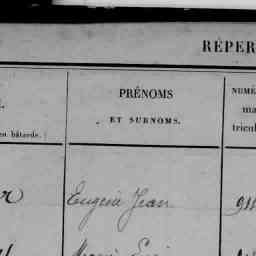 RÉPER
PRÉNOMS
ET SURNOMS.
NUMÉ
ma
tricul
en bâtarde.)
Eugène Jean